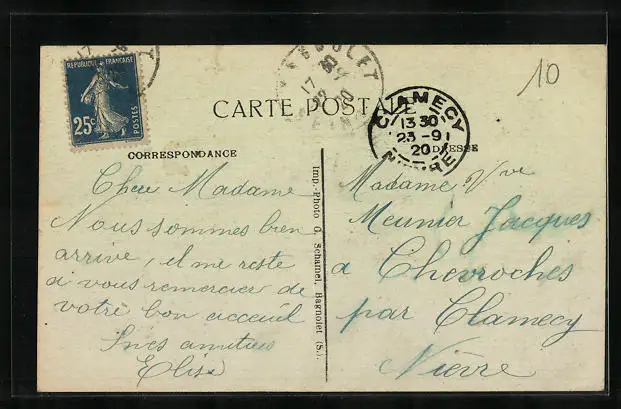 10
REPUBLIQUE FRANÇAISE
25c
POSTES
BAGNOLET
17 30
CARTE POSTALE
CLAMECY
13 30
23 - 9
20
NIEVRE
CORRESPONDANCE
ADRESSE
Chere Madame
Nous sommes bien
arrive, il me reste
a vous remercier de
votre bon acceuil
Sincs amities
Elise
Imp.-Photo G. Schamel, Bagnolet (S.).
Madame Vve
Meunier Jacques
a Chevroches
par Clamecy
Nièvre